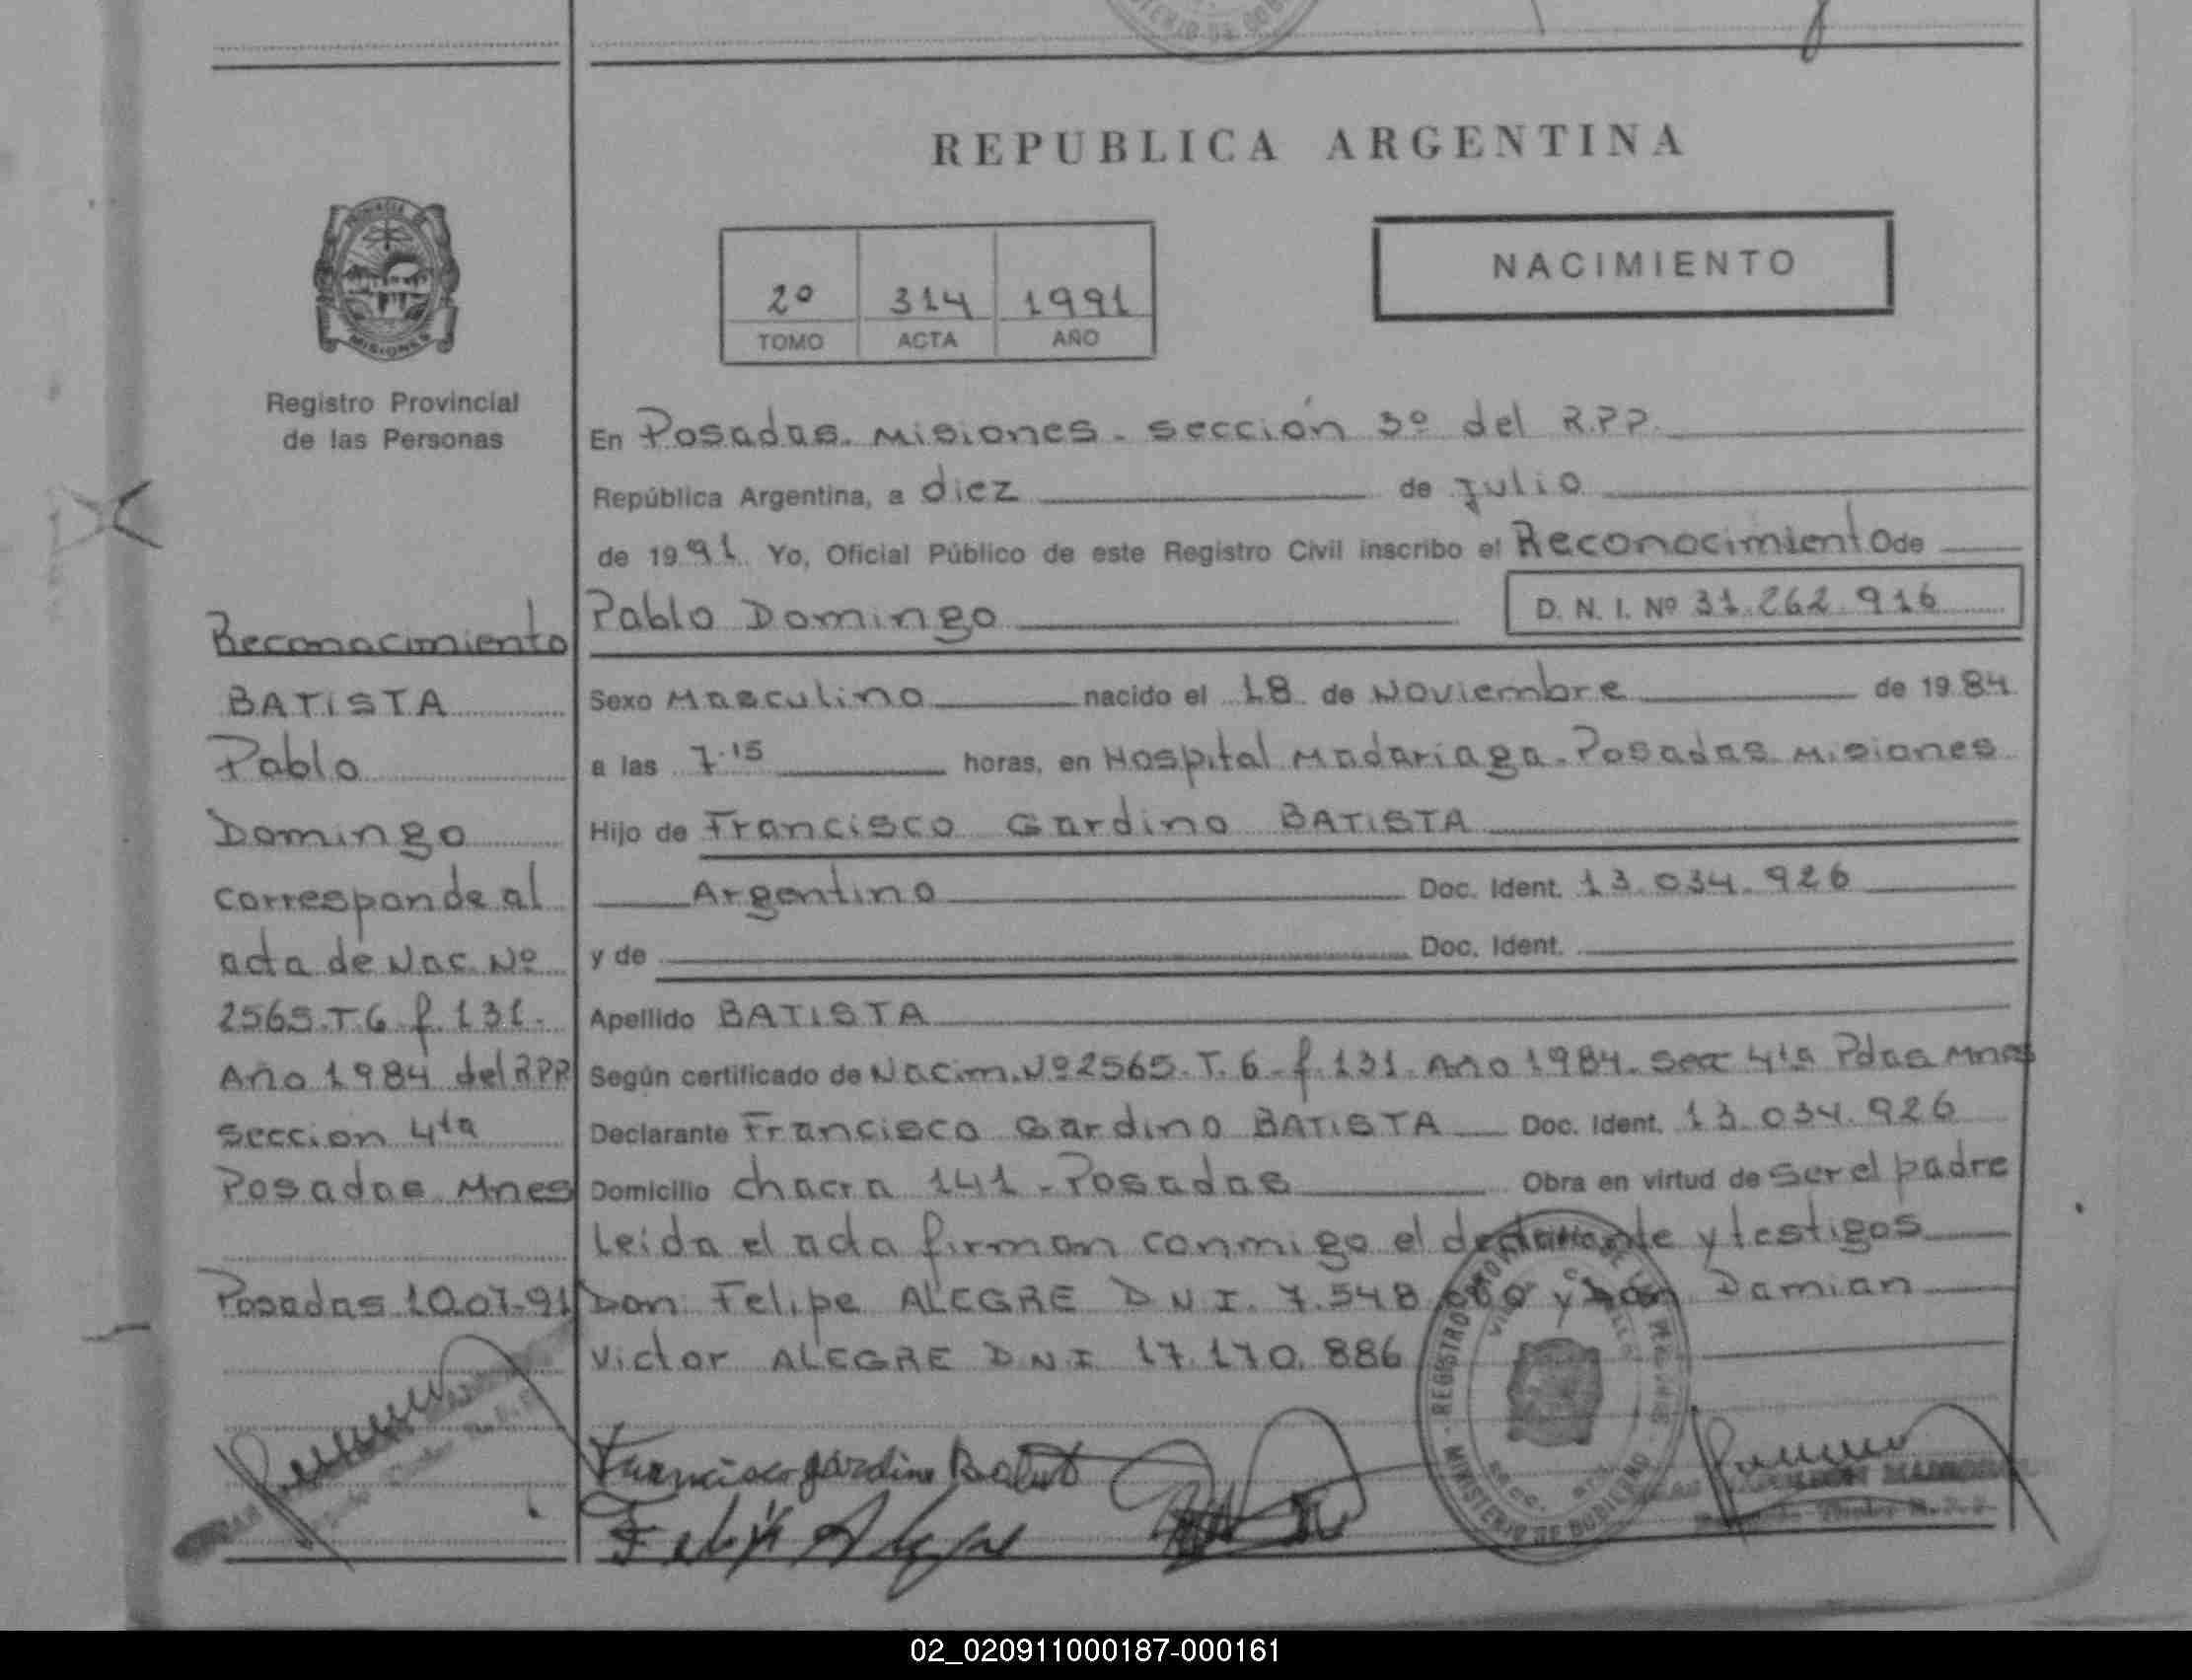 REPUBLICA ARGENTINA
NACIMIENTO
2º 314 1991
TOMO ACTA AÑO
PROVINCIA DE
MISIONES
Registro Provincial
de las Personas
Reconocimiento
BATISTA
Pablo
Domingo
corresponde al
acta de Nac. Nº
2565.T.6 f 131.
Año 1984 del RPP
Seccion 4ta
Posadas Mnes
Posadas 10.07-91
En Posadas. Misiones. sección 3º del R.P.P.
República Argentina, a diez de julio
de 1991. Yo, Oficial Público de este Registro Civil inscribo el Reconocimiento de
Pablo Domingo D. N. I. Nº 31.262.916
Sexo Masculino nacido el 18 de Noviembre de 1984
a las 7.15 horas, en Hospital Madariaga. Posadas Misiones
Hijo de Francisco Gardino BATISTA
Argentino Doc. Ident. 13.034.926
y de Doc. Ident.
Apellido BATISTA
Según certificado de Nacim. Nº 2565. T. 6 - f. 131. Año 1984. Sec 4ta Pdas Mnes
Declarante Francisco Gardino BATISTA Doc. Ident. 13.034.926
Domicilio chacra 141 - Posadas Obra en virtud de ser el padre
Leida el acta firman conmigo el declarante y testigos
Don Felipe ALEGRE D N I. 7.548 y Damian
Victor ALEGRE D N I 17.170.886
Francisco gardino Batist
Felipe Alegre
REGISTRO
MINISTERIO DE GOBIERNO
02_020911000187-000161